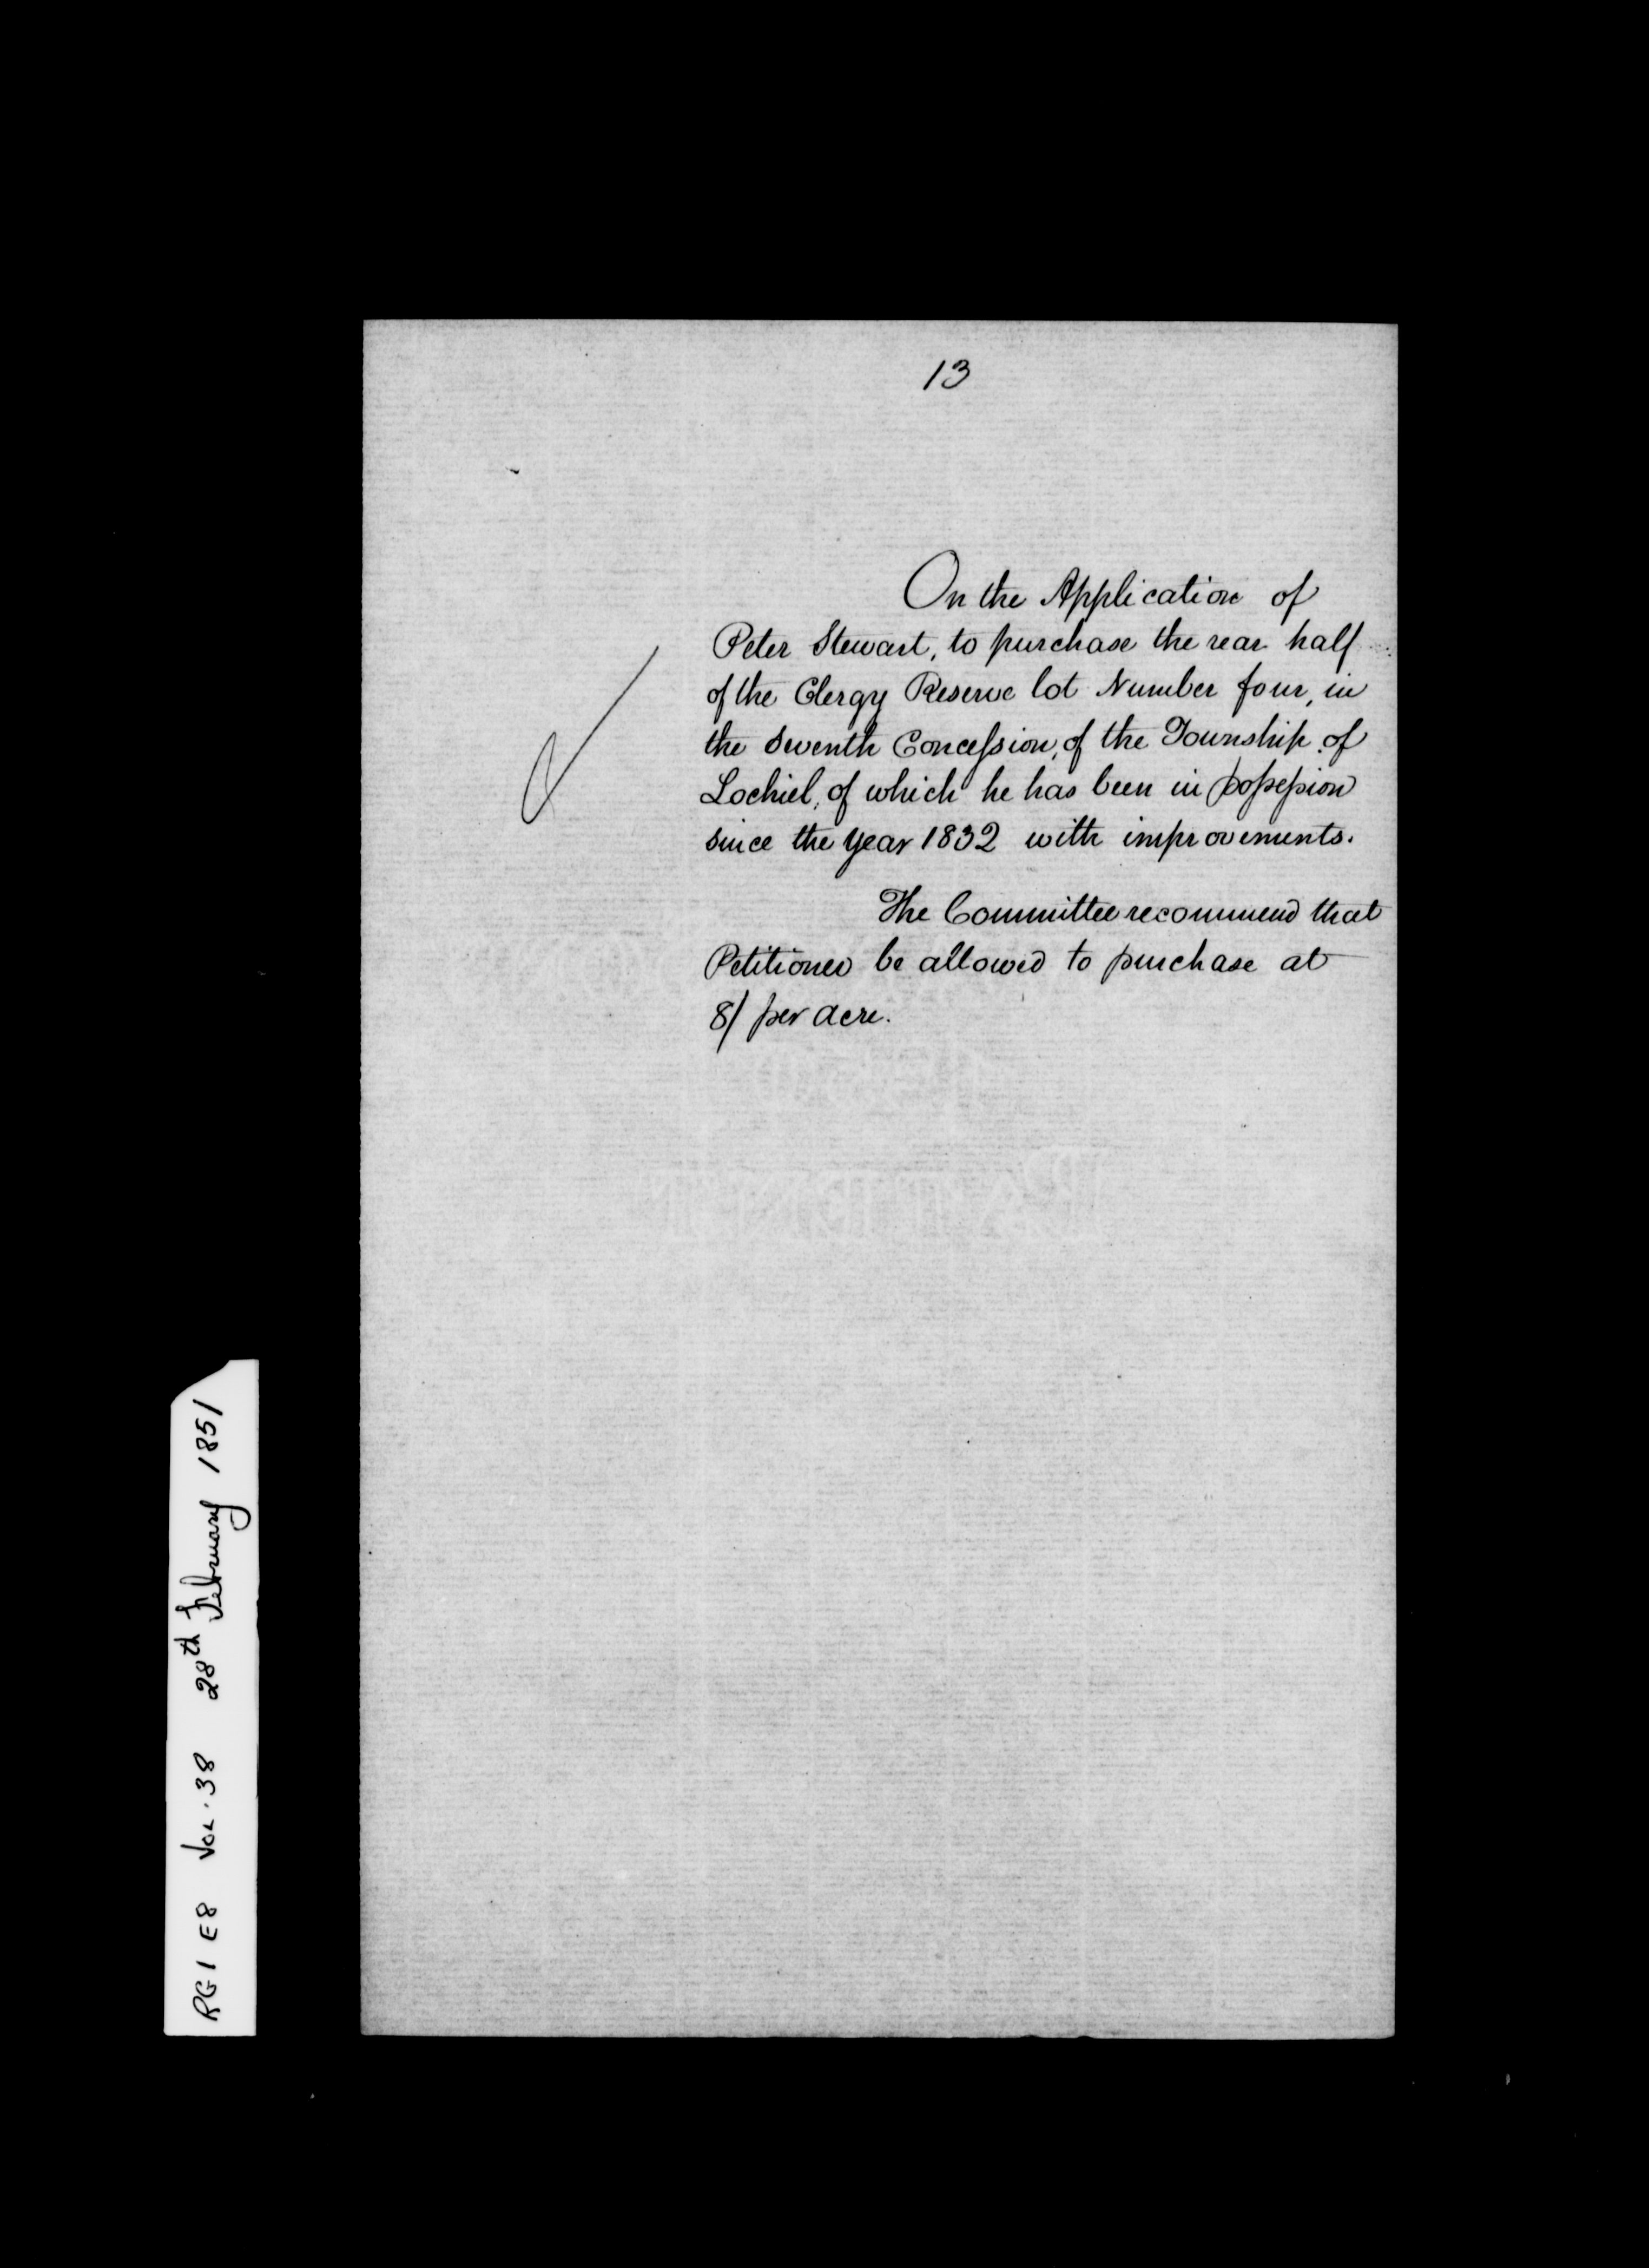 13
On the Application of
Peter Stewart, to purchase the rear half
of the Clergy Reserve lot Number four, in
the Seventh Concession, of the Township of
Lochiel, of which he has been in possession
since the year 1832 with improvements.
The Committee recommend that
Petitioner be allowed to purchase at
8/ per acre.
RG1 E8 Vol. 38 28th February 1851